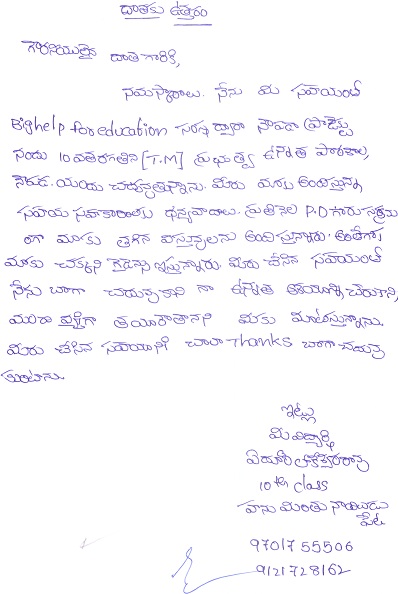 దాతకు ఉత్తరం
గౌరనియులైన దాతగారికి,
నమస్కారాలు. నేను మి సహయంతో
Bighelp for education సంస్థ ద్వారా నొవారా ప్రాజెక్టు
నందు 10వతరగతిని [T.M] ప్రభుత్వ ఉన్నత పాఠశాల,
చదువుతున్నాను. మీరు మాకు అందిస్తున్న
సహాయ సహకారాలకు ధన్యవాదాలు. ప్రతినెల P.D గారు సక్రమ
ంగా మాకు తగిన వస్తువులను అందిస్తున్నారు. అంతేగాక
మాకు చక్కని గైడెన్సు ఇస్తున్నారు. మీరు చేసిన సహయంతో
నేను బాగా చదువుకొని నా ఉన్నత ఆశయాన్ని చేరుకొని,
మంచి వ్యక్తిగా తయారౌతానని మీకు మాటిస్తున్నాను.
మీరు చేసిన సహాయానికి చాలా Thanks బాగా చదువు
కుంటాను.
ఇట్లు
మి విద్యార్థి
10th class
హనుమంతు నాయుడు
పేట
97017 55506
9121728162